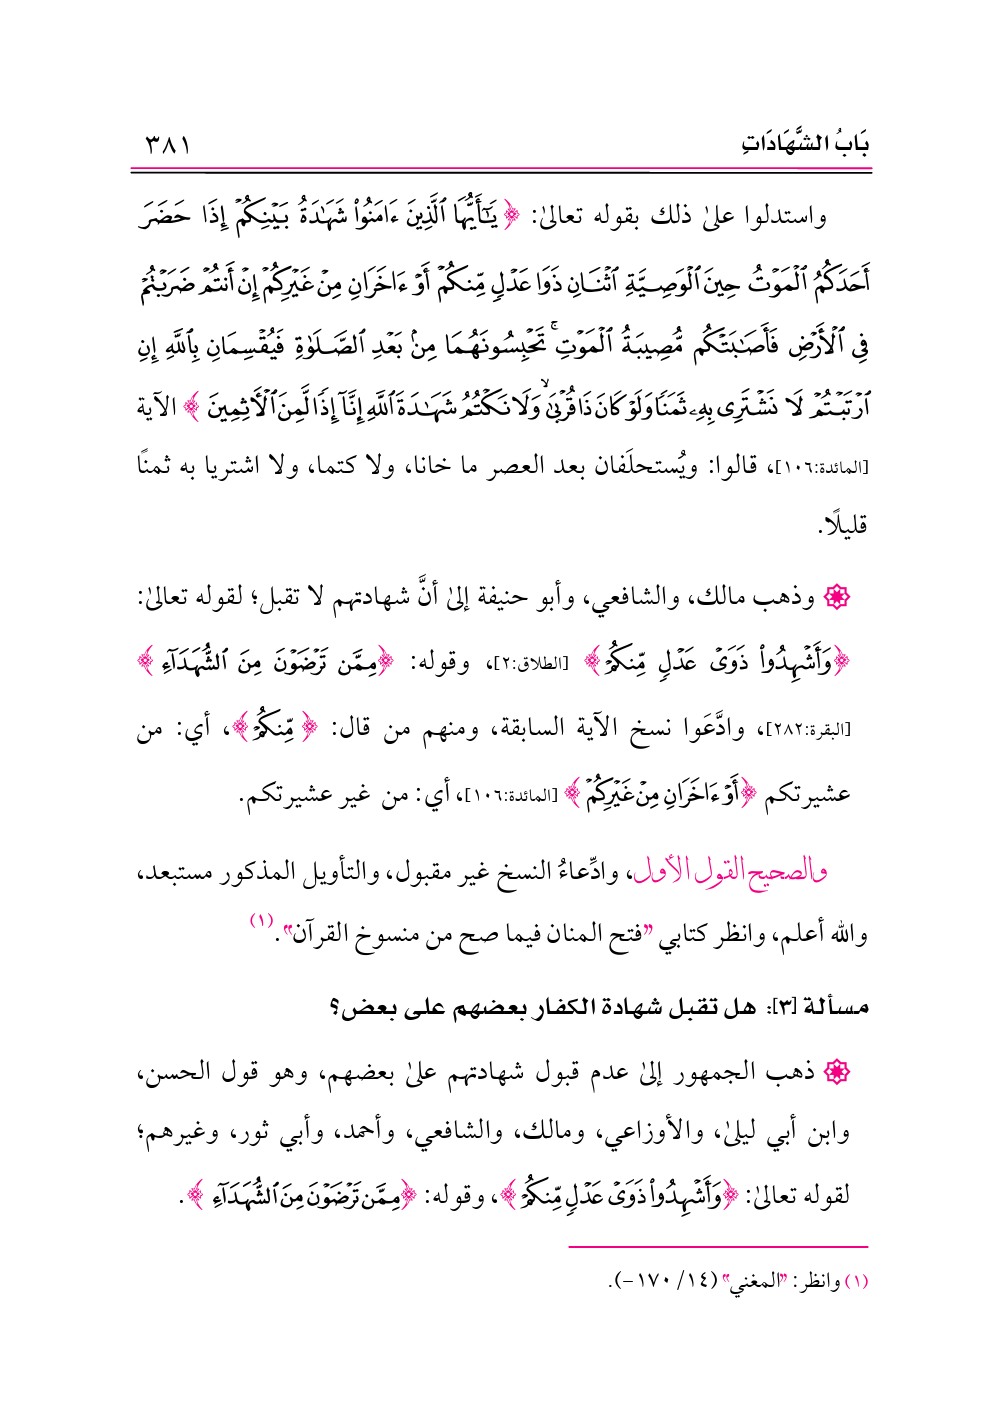 بَابُ الشَّهَادَاتِ ٣٨١
واستدلوا علىٰ ذلك بقوله تعالىٰ: ﴿يَـٰٓأَيُّهَا ٱلَّذِينَ ءَامَنُوا۟ شَهَـٰدَةُ بَيْنِكُمْ إِذَا حَضَرَ
أَحَدَكُمُ ٱلْمَوْتُ حِينَ ٱلْوَصِيَّةِ ٱثْنَـانِ ذَوَا عَدْلٍ مِّنكُمْ أَوْ ءَاخَرَانِ مِنْ غَيْرِكُمْ إِنْ أَنتُمْ ضَرَبْتُمْ
فِى ٱلْأَرْضِ فَأَصَـٰبَتْكُم مُّصِيبَةُ ٱلْمَوْتِ ۚ تَحْبِسُونَهُمَا مِنۢ بَعْدِ ٱلصَّلَوٰةِ فَيُقْسِمَانِ بِٱللَّهِ إِنِ
ٱرْتَبْتُمْ لَا نَشْتَرِى بِهِۦ ثَمَنًا وَلَوْ كَانَ ذَا قُرْبَىٰ ۙ وَلَا نَكْتُمُ شَهَـٰدَةَ ٱللَّهِ إِنَّآ إِذًا لَّمِنَ ٱلْـَٔاثِمِينَ﴾ الآية
[المائدة:١٠٦]، قالوا: ويُستحلَفان بعد العصر ما خانا، ولا كتما، ولا اشتريا به ثمنًا
قليلًا.
۞ وذهب مالك، والشافعي، وأبو حنيفة إلىٰ أنَّ شهادتهم لا تقبل؛ لقوله تعالىٰ:
﴿وَأَشْهِدُوا۟ ذَوَىْ عَدْلٍ مِّنكُمْ﴾ [الطلاق:٢]، وقوله: ﴿مِمَّن تَرْضَوْنَ مِنَ ٱلشُّهَدَآءِ﴾
[البقرة:٢٨٢]، وادَّعَوا نسخ الآية السابقة، ومنهم من قال: ﴿مِّنكُمْ﴾، أي: من
عشيرتكم ﴿أَوْ ءَاخَرَانِ مِنْ غَيْرِكُمْ﴾ [المائدة:١٠٦]، أي: من غير عشيرتكم.
والصحيح القول الأول، وادِّعاءُ النسخ غير مقبول، والتأويل المذكور مستبعد،
والله أعلم، وانظر كتابي "فتح المنان فيما صح من منسوخ القرآن".(١)
مسألة [٣]: هل تقبل شهادة الكفار بعضهم على بعض؟
۞ ذهب الجمهور إلىٰ عدم قبول شهادتهم علىٰ بعضهم، وهو قول الحسن،
وابن أبي ليلىٰ، والأوزاعي، ومالك، والشافعي، وأحمد، وأبي ثور، وغيرهم؛
لقوله تعالىٰ: ﴿وَأَشْهِدُوا۟ ذَوَىْ عَدْلٍ مِّنكُمْ﴾، وقوله: ﴿مِمَّن تَرْضَوْنَ مِنَ ٱلشُّهَدَآءِ﴾.
(١) وانظر: "المغني" (١٤/ ١٧٠-).